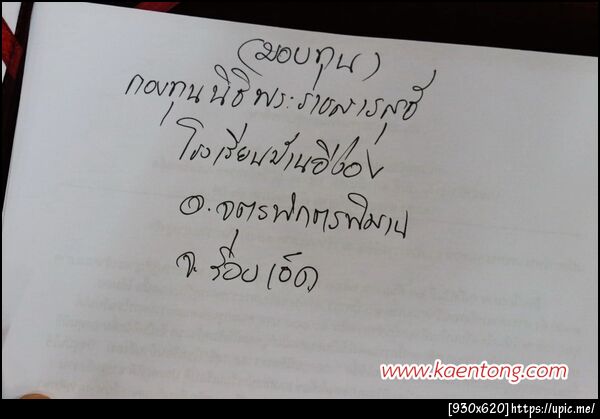 (มอบทุน)
กองทุนนิธิพระราชสารสุธี
โรงเรียนบ้านอีง่อง
อ.จตุรพักตรพิมาน
จ.ร้อยเอ็ด
www.kaentong.com
[930x620]https://upic.me/